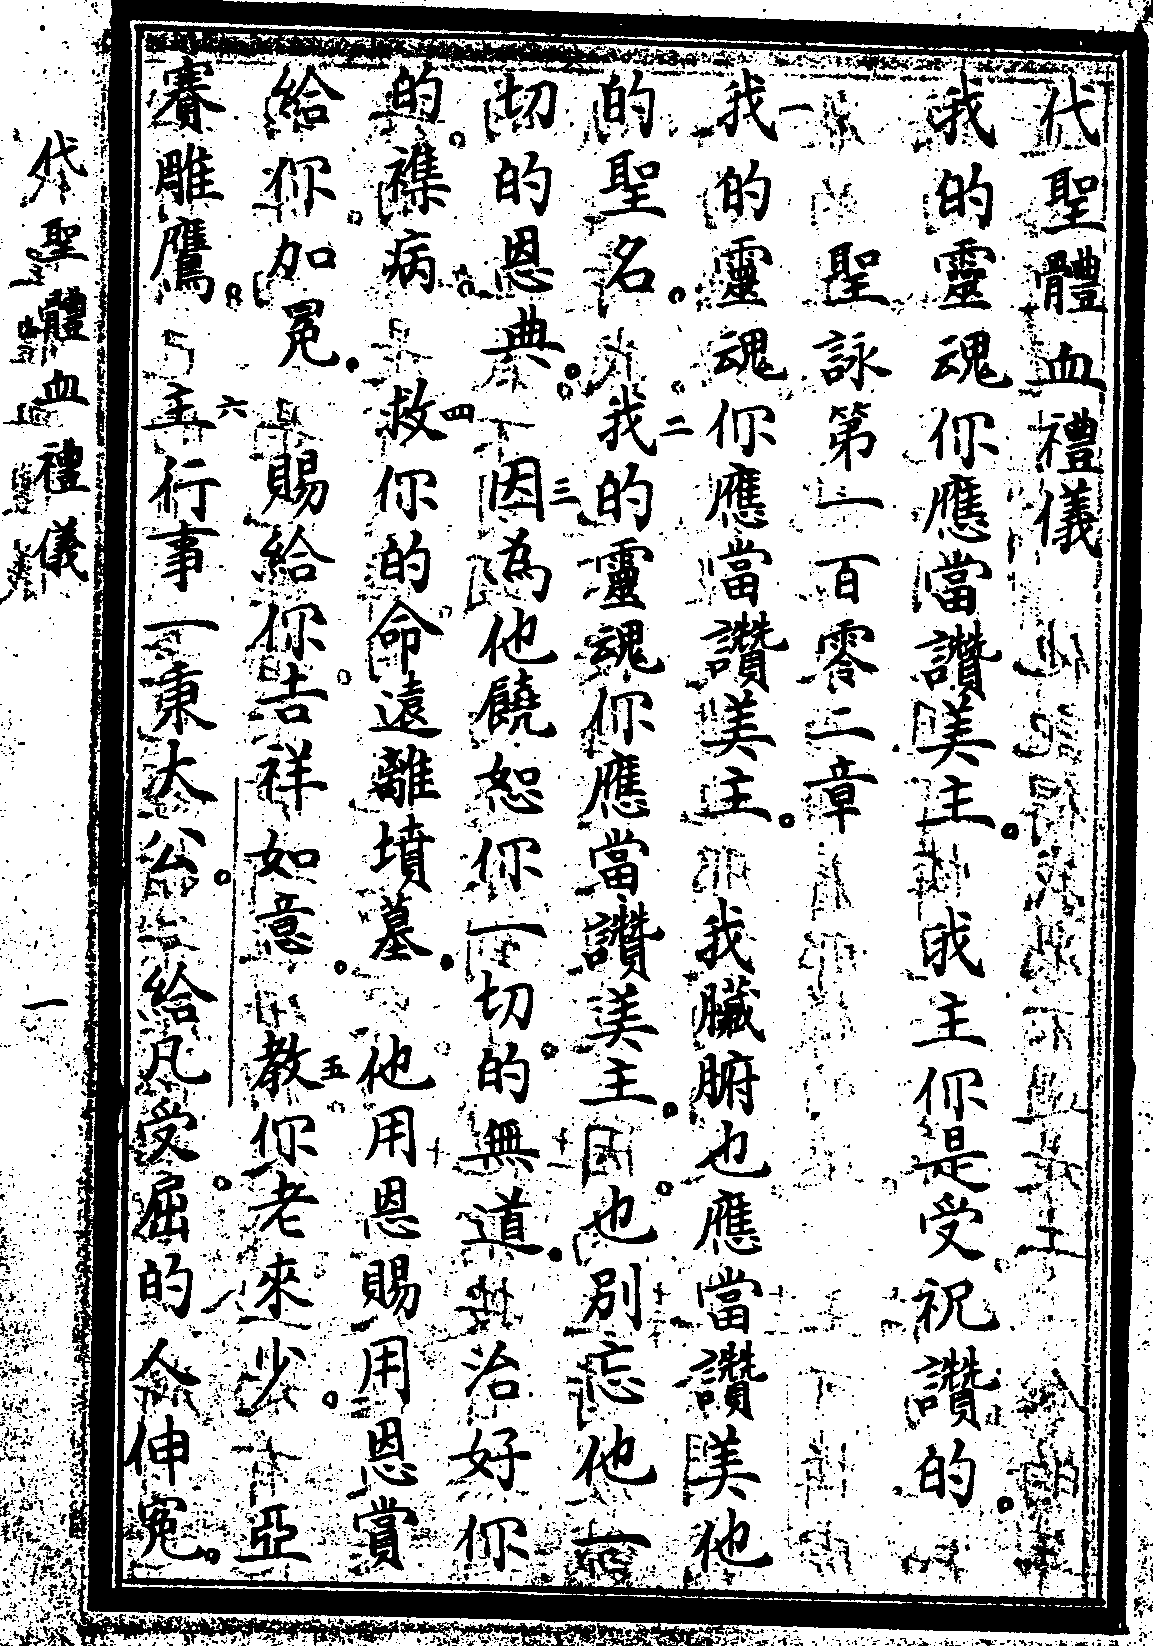 代聖體血禮儀
我的靈魂你應當讚美主。我主你是受祝讚的。
聖詠第一百零二章
一我的靈魂你應當讚美主。我臟腑也應當讚美他
的聖名。二我的靈魂你應當讚美主。因也別忘他一
切的恩典。三因為他饒恕你一切的無道。治好你
的襍病。四救你的命遠離墳墓。他用恩賜用恩賞
給你加冕。賜給你吉祥如意。五教你老來少。亞
賽雕鷹。六主行事一秉大公。給凡受屈的人伸冤。
代聖體血禮儀 一